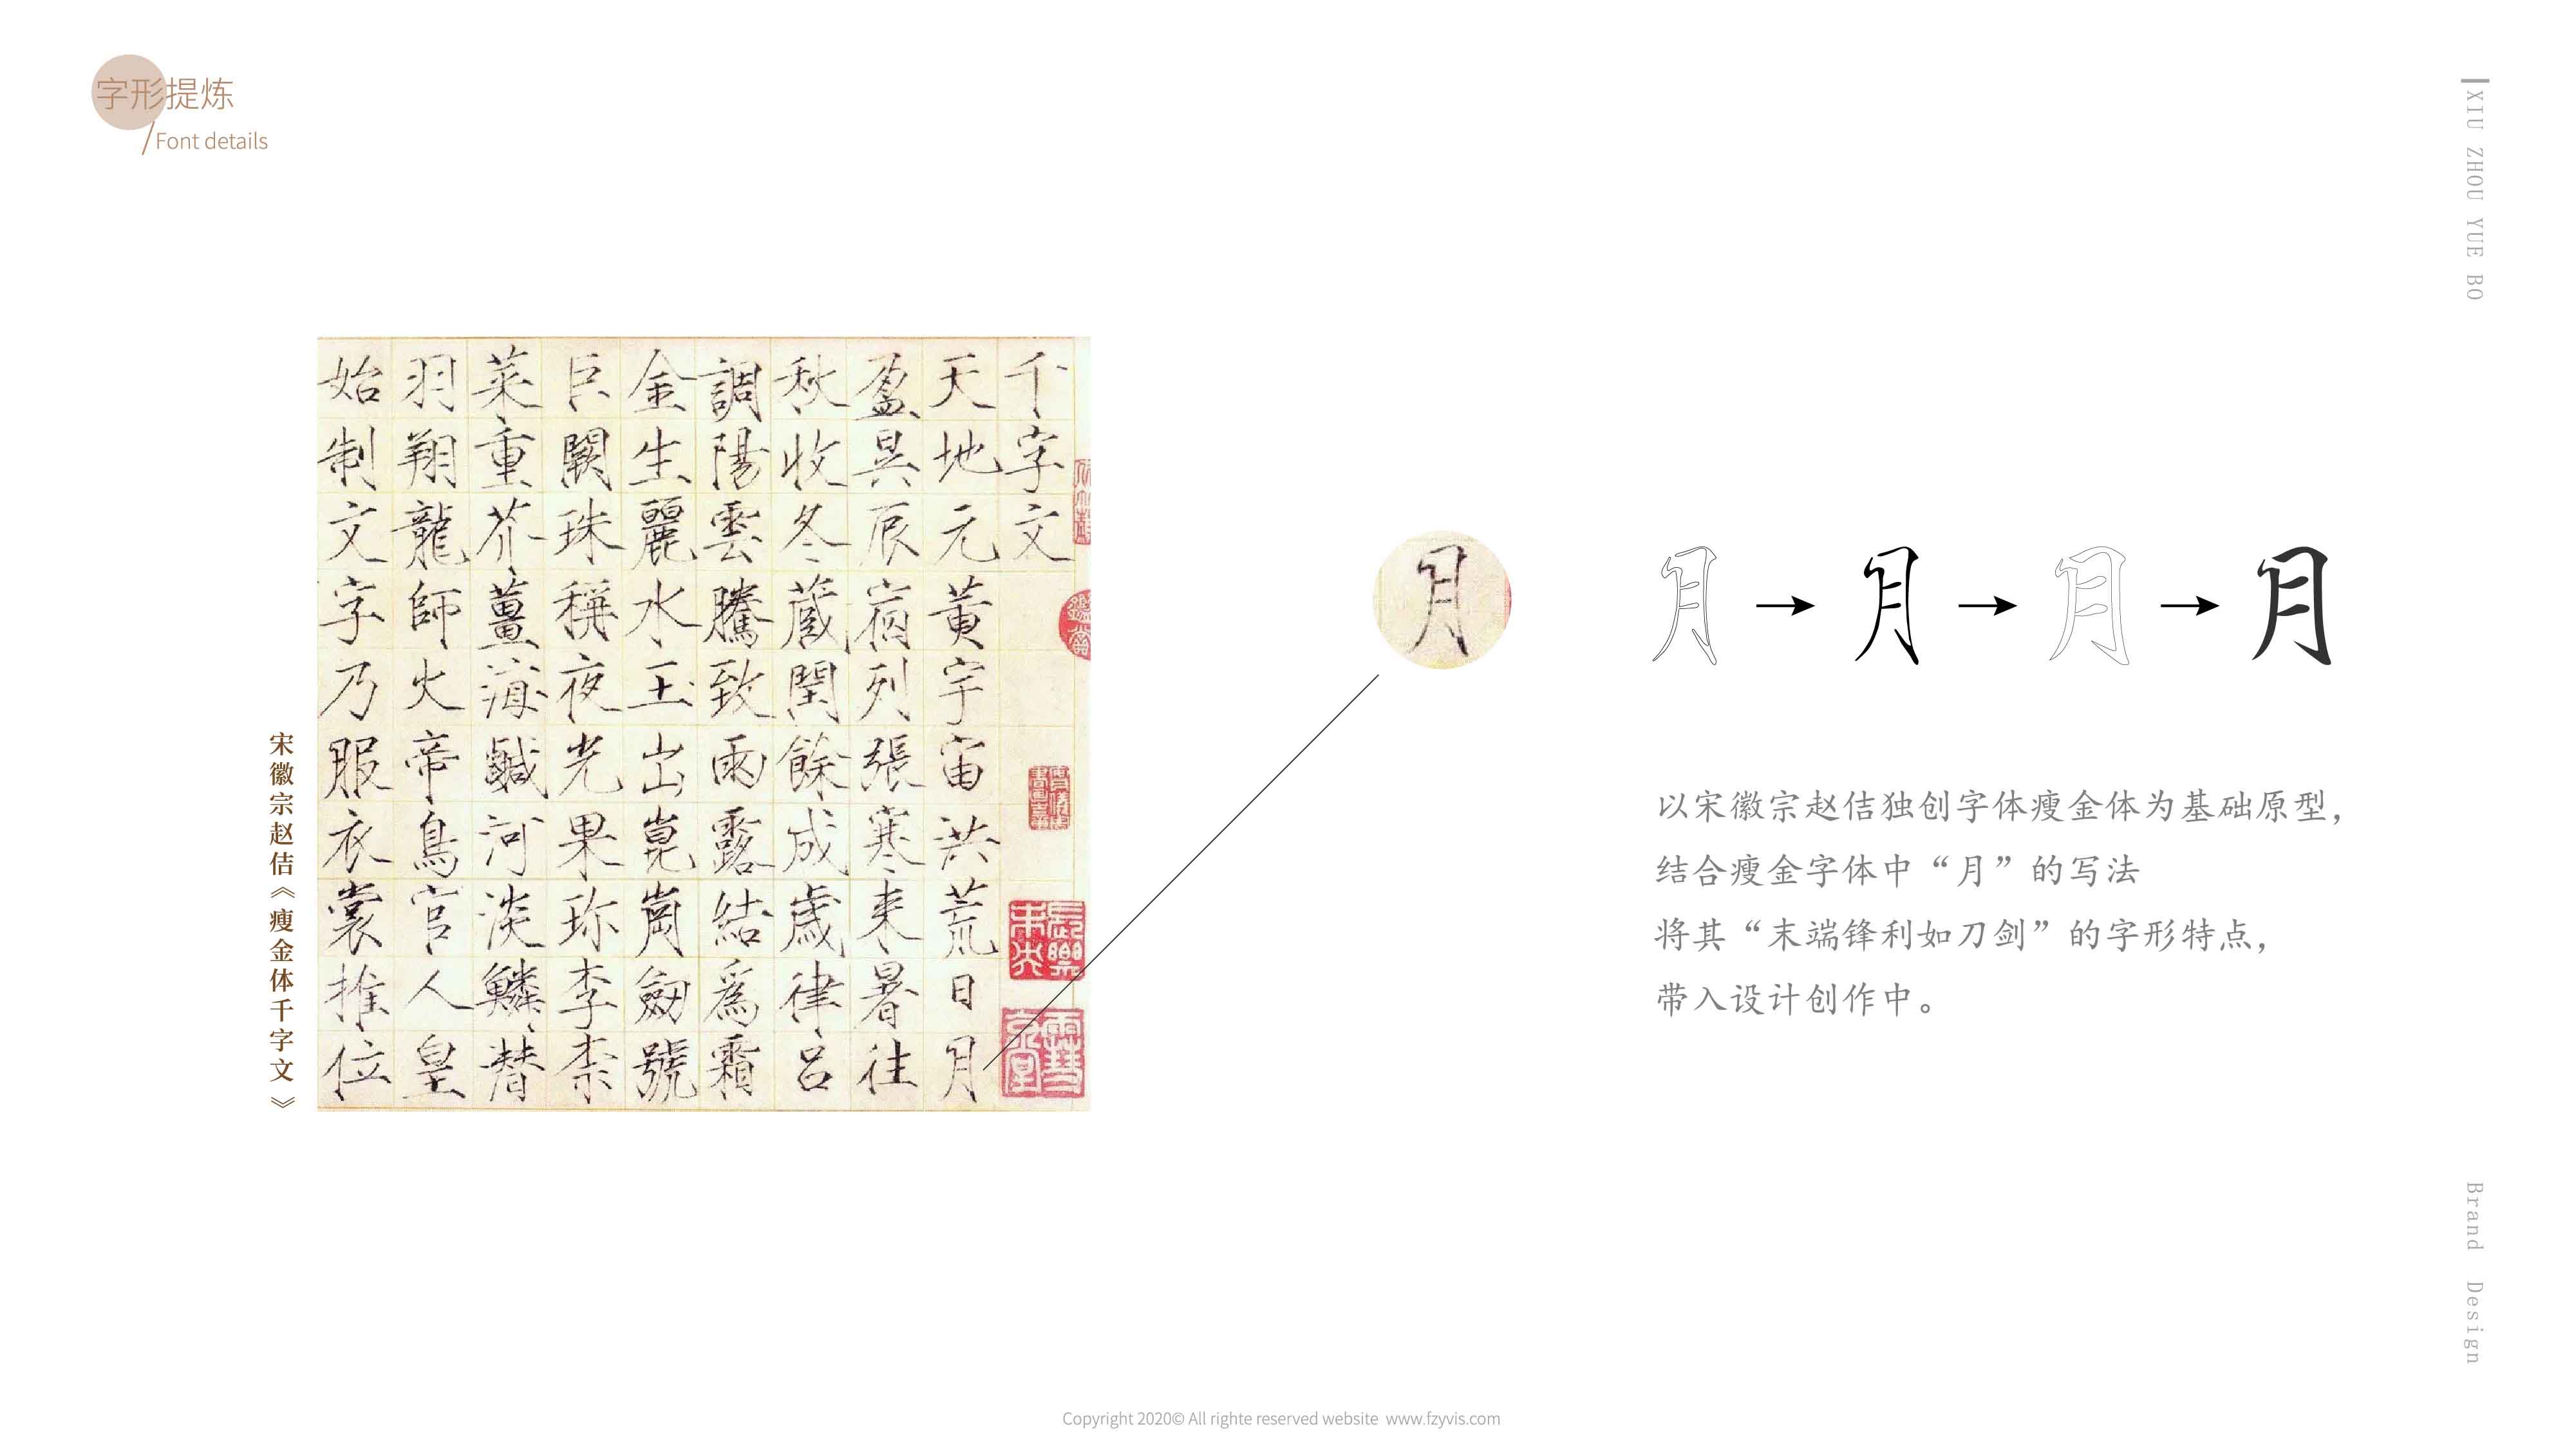 字形提炼
/Font details
XIU ZHOU YUE BO
千字文
天地元黄宇宙洪荒日月
盈昃辰宿列張寒来暑往
秋收冬蔵閏餘成歳律吕
調陽雲騰致雨露結爲霜
金生麗水玉出崑崗劔號
巨闕珠稱夜光果珎李柰
菜重芥薑海鹹河淡鱗潜
羽翔龍師火帝鳥官人皇
始制文字乃服衣裳推位
宋徽宗赵佶《瘦金体千字文》
月
月→月→月→月
以宋徽宗赵佶独创字体瘦金体为基础原型，
结合瘦金字体中“月”的写法
将其“末端锋利如刀剑”的字形特点，
带入设计创作中。
Brand Design
Copyright 2020© All righte reserved website www.fzyvis.com